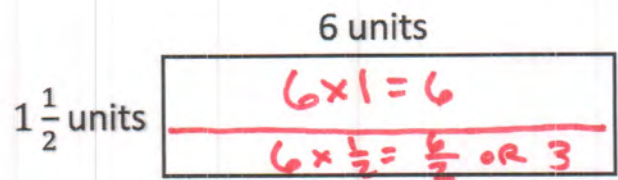 6 units
1 1/2 units
6 x 1 = 6
6 x 1/2 = 6/2 OR 3